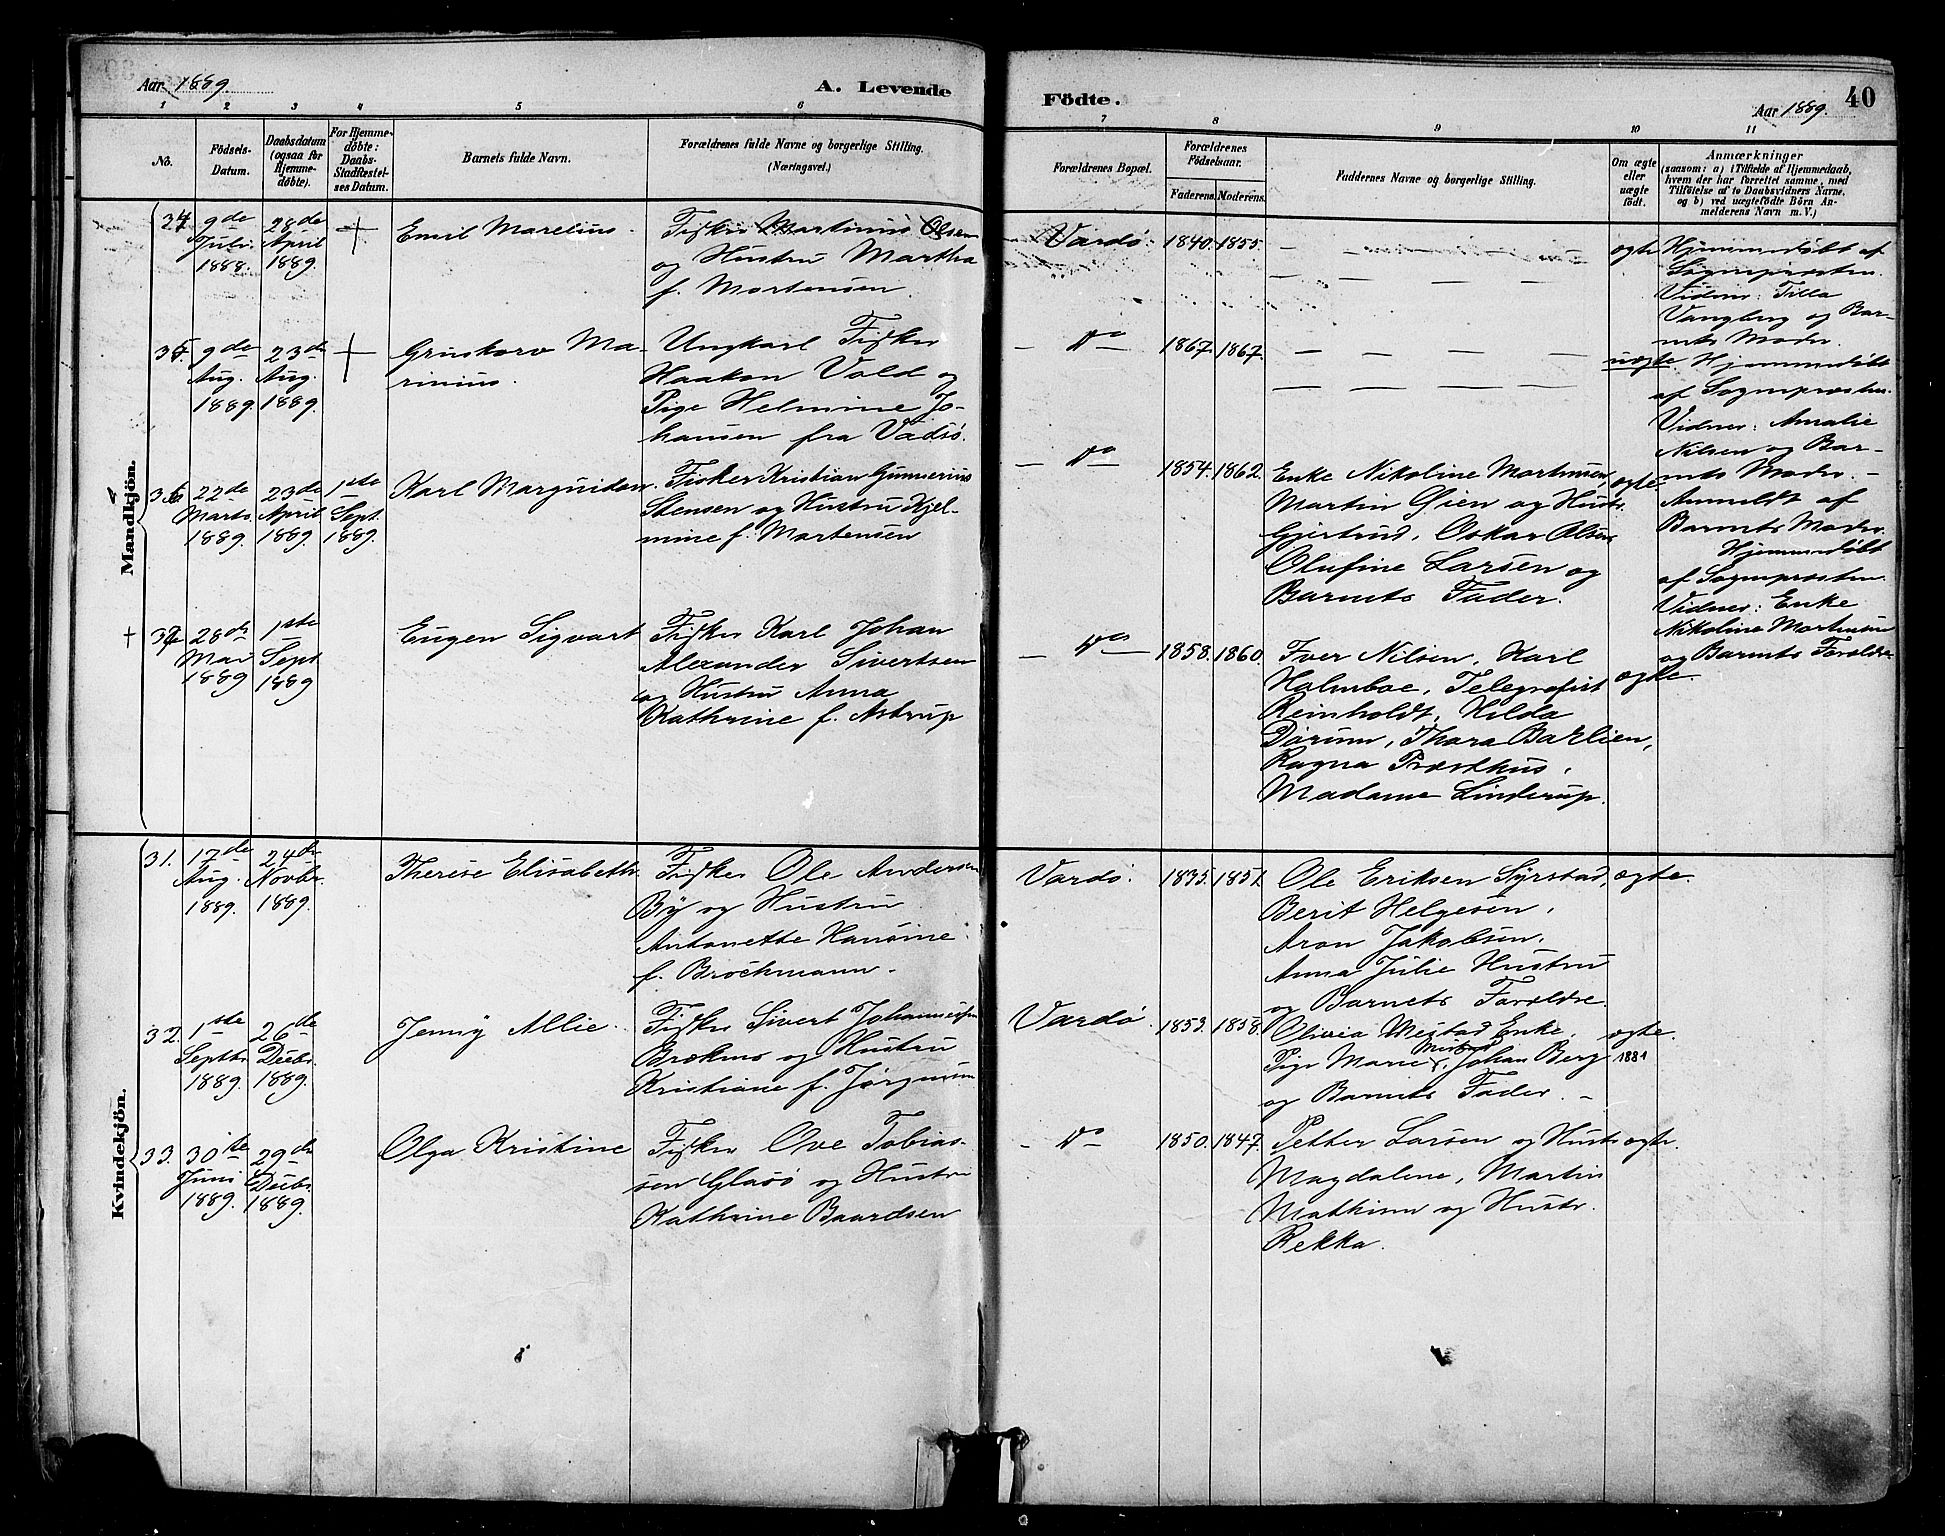 Aar 1889.
A. Levende
Födte.
Aar 1889.
40
1 2 3 4 5 6 7 8 9 10 11
No.
Födsels-
Datum.
Daabsdatum
(ogsaa for
Hjemme-
døbte).
For Hjemme-
døbte:
Daabs-
Stadfæstel-
ses Datum.
Barnets fulde Navn.
Forældrenes fulde Navne og borgerlige Stilling.
(Næringsvei.)
Forældrenes Bopæl.
Forældrenes
Födselsaar.
Faderens.
Moderens.
Faddernes Navne og borgerlige Stilling.
Om ægte
eller
uægte
født.
Anmærkninger
(saasom: a) i Tilfælde af Hjemmedaab,
hvem der har forrettet samme, med
Tilføielse af to Daabsvidners Navne,
og b) ved uægtefødte Börn An-
melderens Navn m. V.)
Mandkjön.
34
9de
Juli
1888.
28de
April
1889.
Emil Marelius.
Fisker Martinus Olsen
og Hustru Martha
f. Mortensen.
Vardø.
1840.
1855.
ægte
Hjemmedøbt af
Sognepresten.
Vidner: Tilla
Vangberg og Bar-
nets Moder.
35.
9de
Aug.
1889.
23de
Aug.
1889.
Ma-
rinius.
Ungkarl Fisker
Haakon Vold og
Pige Helmine Jo-
hansen fra Vadsö.
Do
1867.
1867.
uægte
Hjemmedøbt
af Sognepresten.
Vidner: Amalie
Nilsen og Bar-
nets Moder. -
Anmeldt af
Barnets Moder.
36
22de
Marts
1889.
23de
April
1889.
1ste
Sept.
1889.
Karl Marguidan.
Fisker Kristian Gunnerius
Stensen og Hustru Hjel-
mine f. Mortensen
Do
1854.
1862.
Enke Nikoline Mortensen,
Martin Øien og Hustr.
Gjertrud, Oskar Olsen,
Olufine Larsen og
Barnets Fader.
ægte
Hjemmedøbt
af Sognepresten.
Vidner: Enke
Nikoline Mortensen
og Barnets Forældre
37
28de
Mar
1889
1ste
Sept
1889
Eugen Sigvart
Fisker Karl Johan
Alexander Sivertsen
og Hustru Anna
Kathrine f. Astrup
Do
1858.
1860.
Iver Nilsen, Karl
Holmboe, Telegrafist
Reinholdt, Hilda
Dørum, Thora Barlien,
Ragna Præsthus,
Madame Linderup.
ægte.
Kvindekjön.
31.
17de
Aug.
1889.
24de
Novbr.
1889.
Therese Elisabeth.
Fisker Ole Andersen
By og Hustru
Antonette Hansine
f. Brochmann.
Vardø.
1835.
1851.
Ole Eriksen Syrstad,
Berit Helgesen,
Aron Jakobsen,
Anna Julie Hustru
og Barnets Forældre.
ægte.
32.
1ste
Septbr.
1889.
26de
Decbr.
1889.
Jenny Allie.
Fisker Sivert Johannessen
Brækmo og Hustru
Kristiane f. Jørgensen
Vardø.
1853.
1858.
Olivia Mestad Enke,
Pige Marie Mestad, Johan Berg
og Barnets Fader. -
ægte.
1881
33.
30te
Juni
1889.
29de
Decbr.
1889.
Olga Kristine
Fisker Ove Tobias-
sen Glasö og Hustr
Kathrine Baardsen
Do
1850.
1847.
Petter Larsen og Hustr
Magdalene, Martin
Mathisen og Hustr.
Rekka.
ægte.